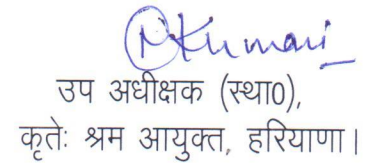 PKumari
उप अधीक्षक (स्था0),
कृतेः श्रम आयुक्त, हरियाणा।